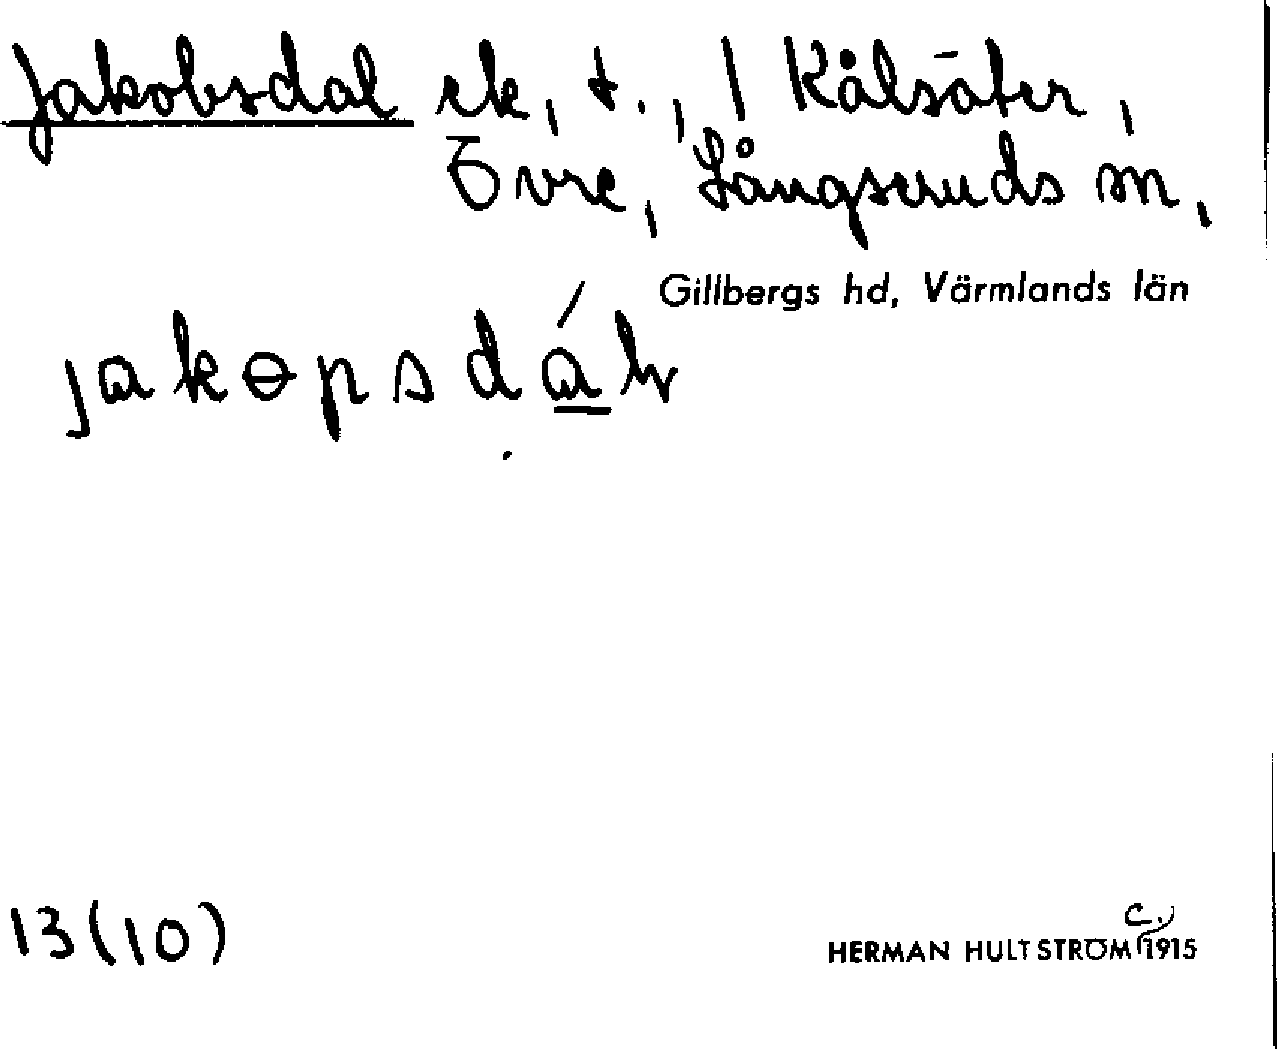 Jakobsdal ek, t., / Kålsäter,
Övre, Långseruds sn,
Gillbergs hd, Värmlands län
jakɵpsdál
13(10)
c.
HERMAN HULTSTRÖM 1915